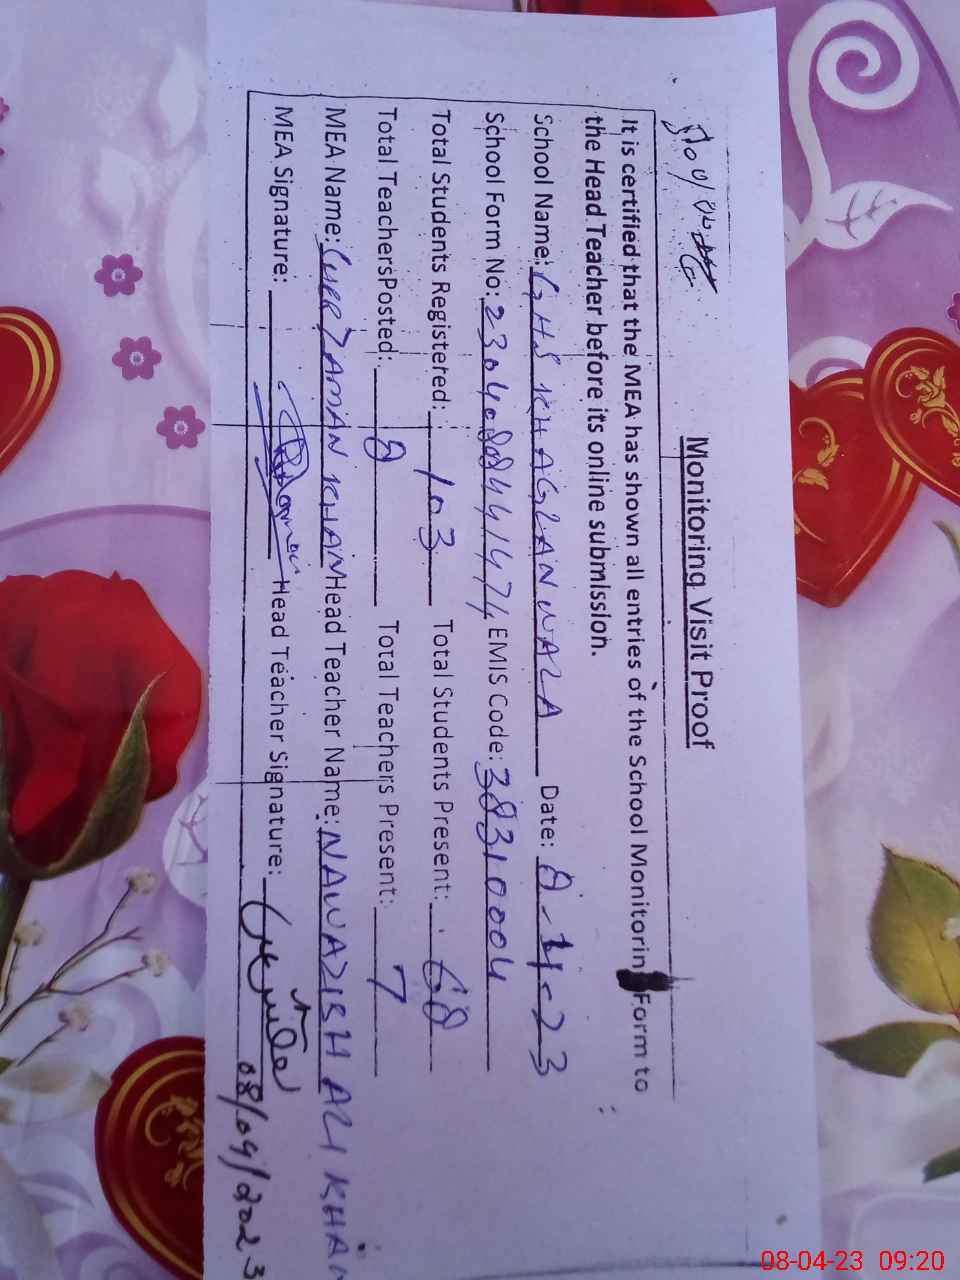 Monitoring Visit Proof
It is certified that the MEA has shown all entries of the School Monitorin Form to
the Head Teacher before its online submission.
School Name: GHS KHAGLANWALA Date: 8-4-23
School Form No: EMIS Code: 38310004
Total Students Registered: 103 Total Students Present: 68
Total TeachersPosted: 8 Total Teachers Present: 7
MEA Name: ZAMAN KHAN Head Teacher Name: NAWAZISH ALI KHAN
MEA Signature: Head Teacher Signature:
08/04/2023
08-04-23 09:20